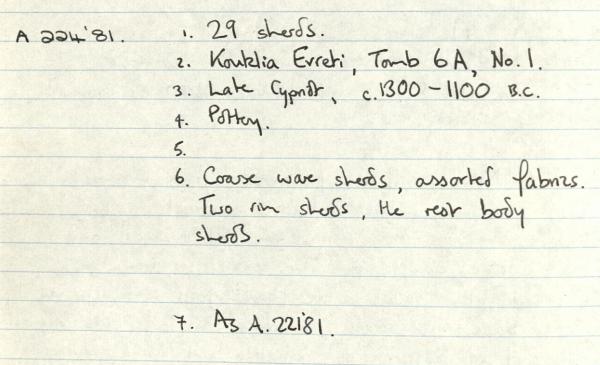 A 224'81. 1. 29 sherds.
2. Kouklia Evreti, Tomb 6A, No. 1.
3. Late Cypriot, c.1300 - 1100 B.C.
4. Pottery.
5.
6. Coarse ware sherds, assorted fabrics.
Two rim sherds, the rest body
sherds.
7. As A.221'81.